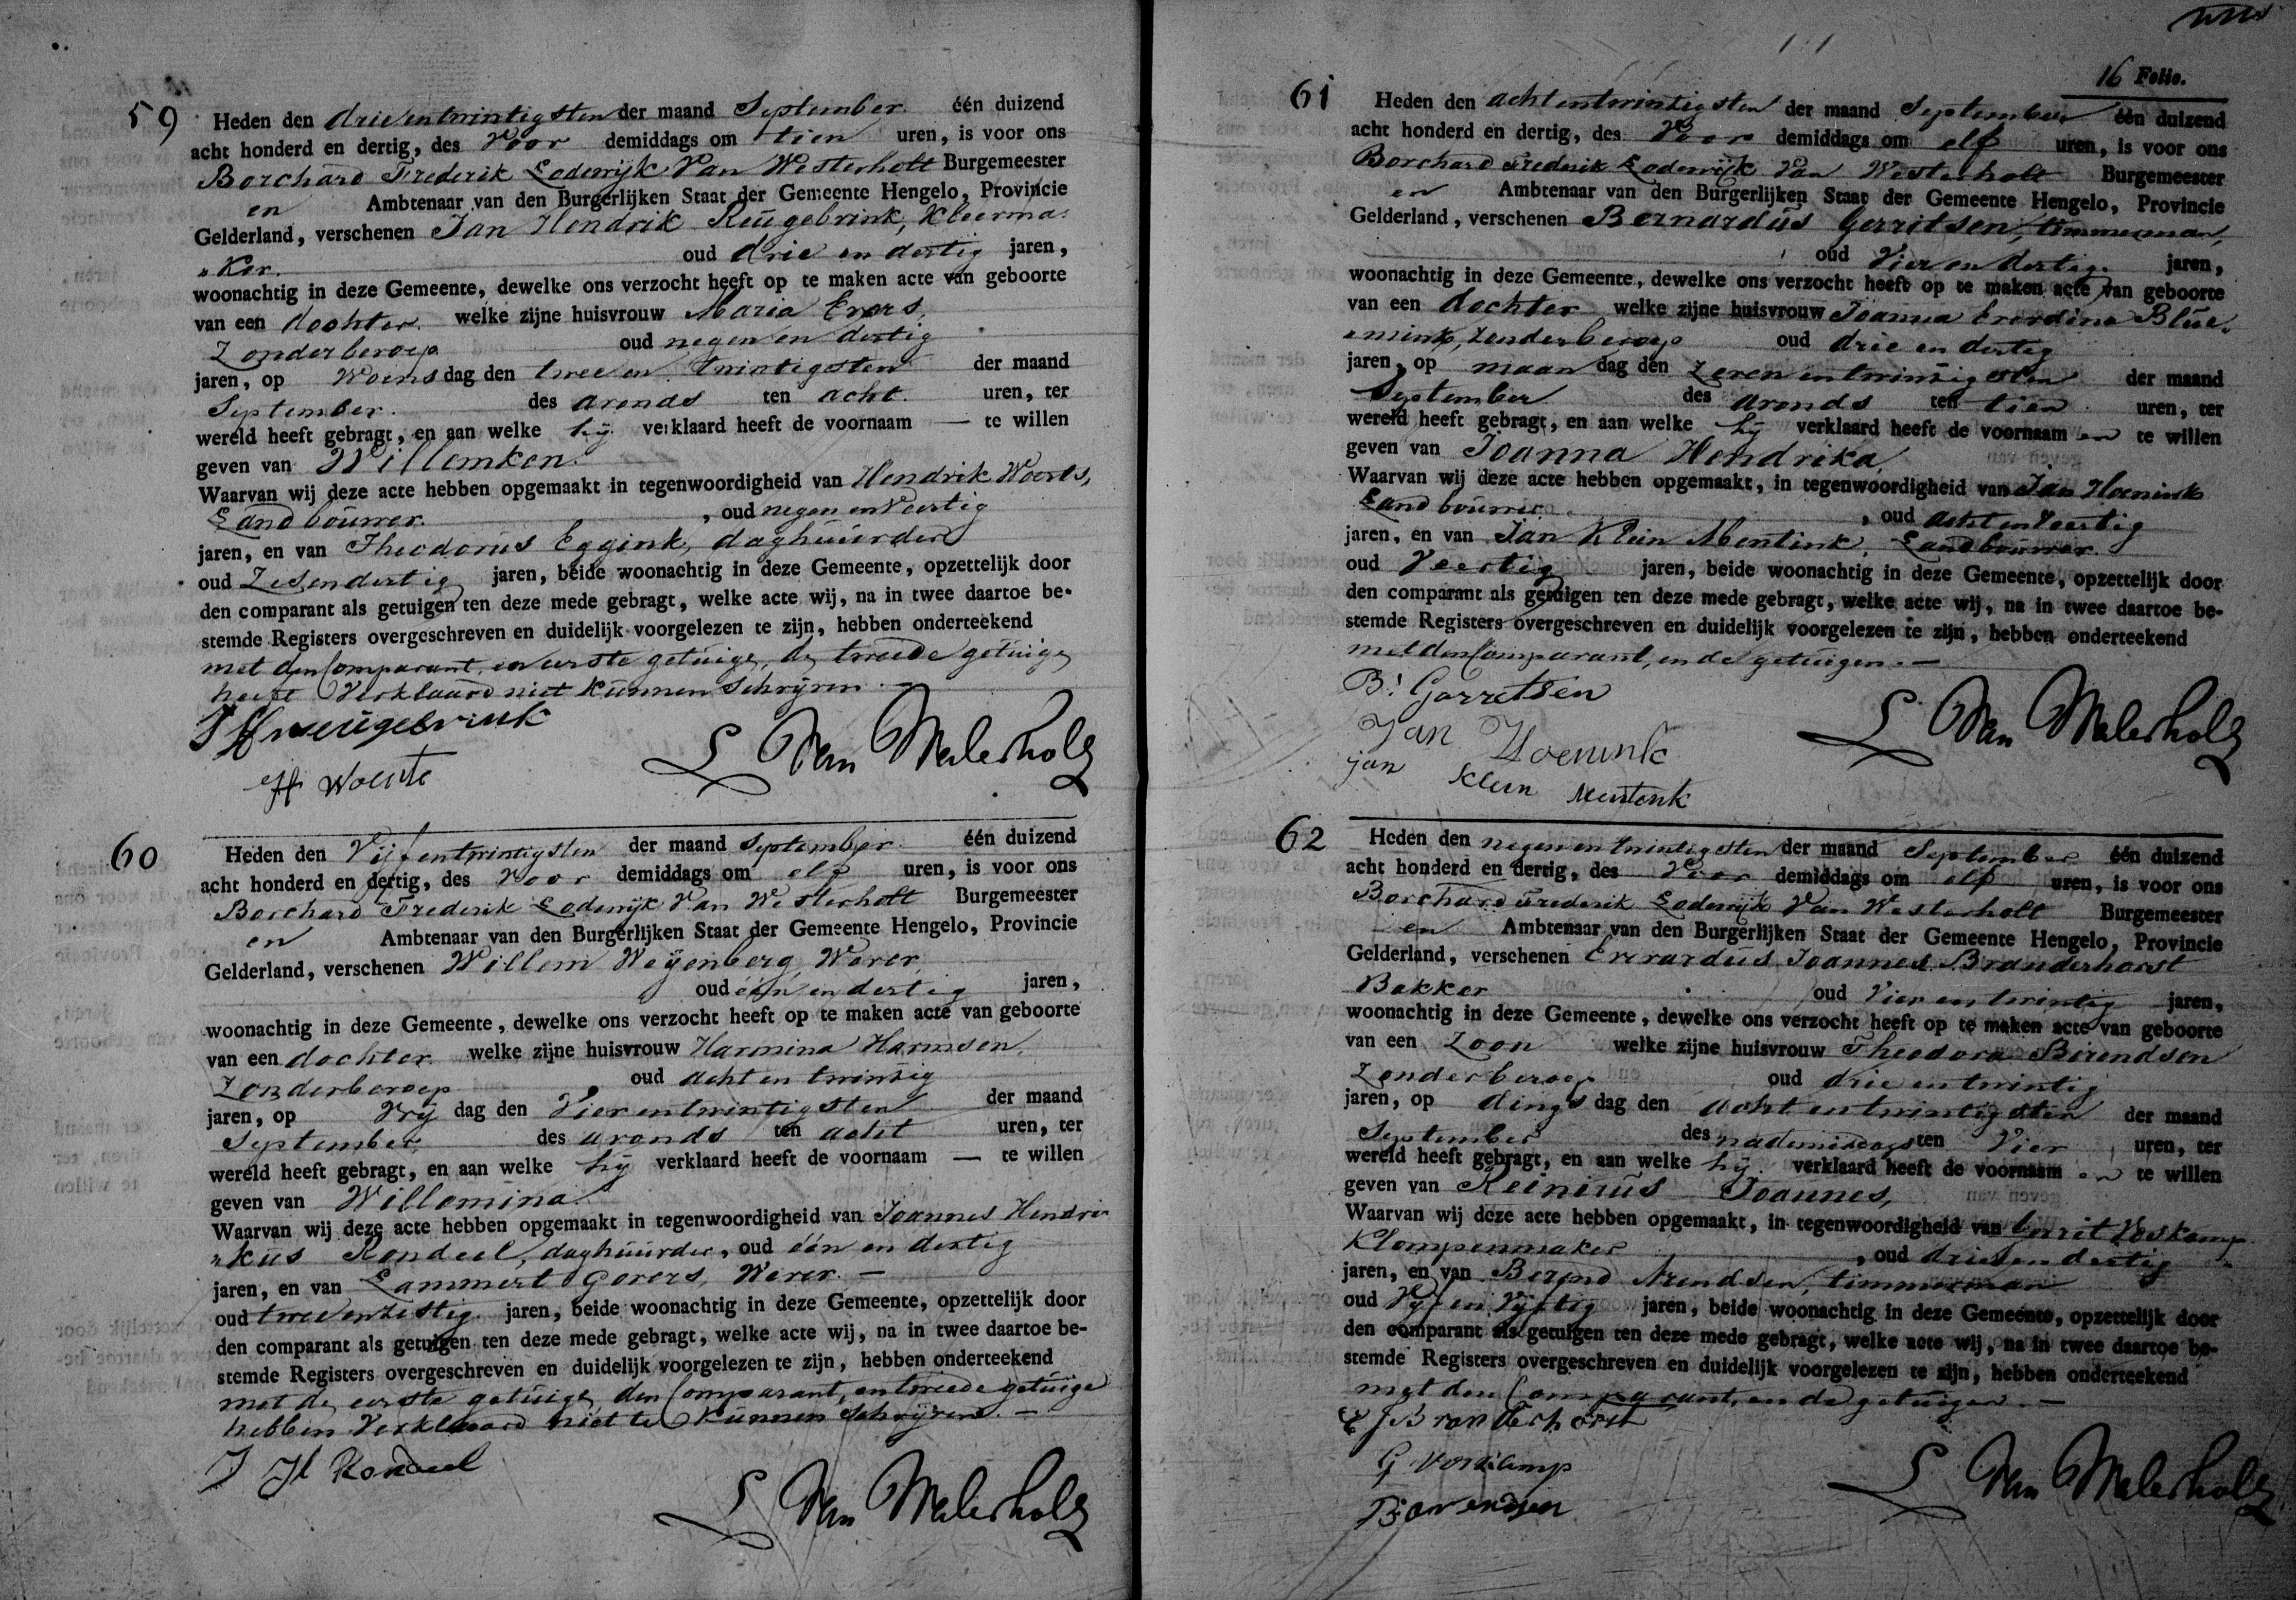 59
Heden den drieentwintigsten der maand September één duizend
acht honderd en dertig, des Voor demiddags om tien uren, is voor ons
Borchard Frederik Lodewijk Van Westerholt Burgemeester
en Ambtenaar van den Burgerlijken Staat der Gemeente Hengelo, Provincie
Gelderland, verschenen Jan Hendrik Reugebrink, Kleerma-
"ker. oud drie en dertig jaren,
woonachtig in deze Gemeente, dewelke ons verzocht heeft op te maken acte van geboorte
van een dochter welke zijne huisvrouw Maria Evers,
Zonderberoep oud negen en dertig
jaren, op Woens dag den twee en twintigsten der maand
September. des avonds ten acht. uren, ter
wereld heeft gebragt, en aan welke hij verklaard heeft de voornaam — te willen
geven van Willemken.
Waarvan wij deze acte hebben opgemaakt in tegenwoordigheid van Hendrik Woerts,
Landbouwer. , oud negen en Veertig
jaren, en van Theodorus Eggink, daghuurder
oud Zesendertig jaren, beide woonachtig in deze Gemeente, opzettelijk door
den comparant als getuigen ten deze mede gebragt, welke acte wij, na in twee daartoe be-
stemde Registers overgeschreven en duidelijk voorgelezen te zijn, hebben onderteekend
met den Comparant, en eerste getuige, de tweede getuige
heeft Verklaard niet kunnen Schrijven. —
L Van Westerholt
60
Heden den Vijfentwintigsten der maand September één duizend
acht honderd en dertig, des Voor demiddags om elf uren, is voor ons
Borchard Frederik Lodewijk Van Westerholt Burgemeester
en Ambtenaar van den Burgerlijken Staat der Gemeente Hengelo, Provincie
Gelderland, verschenen Willem Weijenberg, Wever,
oud één en dertig jaren,
woonachtig in deze Gemeente, dewelke ons verzocht heeft op te maken acte van geboorte
van een dochter welke zijne huisvrouw Harmina Harmsen,
Zonderberoep oud acht en twintig
jaren, op Vrij dag den Vierentwintigsten der maand
September des avonds ten acht uren, ter
wereld heeft gebragt, en aan welke hij verklaard heeft de voornaam — te willen
geven van Willemina
Waarvan wij deze acte hebben opgemaakt in tegenwoordigheid van Joannes Hendri-
"kus Rondeel, daghuurder, oud één en dertig
jaren, en van Lammert Govers, Wever. —
oud tweeenzestig jaren, beide woonachtig in deze Gemeente, opzettelijk door
den comparant als getuigen ten deze mede gebragt, welke acte wij, na in twee daartoe be-
stemde Registers overgeschreven en duidelijk voorgelezen te zijn, hebben onderteekend
met de eerste getuige, den Comparant, en tweede getuige
hebben Verklaard niet te Kunnen Schrijven. —
J H Rondeel
L Van Westerholt
16 Folio.
61
Heden den achtentwintigsten der maand September één duizend
acht honderd en dertig, des Voor demiddags om elf uren, is voor ons
Borchard Frederik Lodewijk Van Westerholt Burgemeester
en Ambtenaar van den Burgerlijken Staat der Gemeente Hengelo, Provincie
Gelderland, verschenen Bernardus Gerritsen, timmerman,
oud Vier en dertig jaren,
woonachtig in deze Gemeente, dewelke ons verzocht heeft op te maken acte van geboorte
van een dochter welke zijne huisvrouw Joanna Everdina Blue-
"mink, Zonderberoep oud drie en dertig
jaren, op maan dag den Zevenentwintigsten der maand
September des avonds ten tien uren, ter
wereld heeft gebragt, en aan welke hij verklaard heeft de voornaam en te willen
geven van Joanna Hendrika,
Waarvan wij deze acte hebben opgemaakt, in tegenwoordigheid van Jan Hoenink
Landbouwer , oud acht en Veertig
jaren, en van Jan Klein Mentink, Landbouwer
oud Veertig jaren, beide woonachtig in deze Gemeente, opzettelijk door
den comparant als getuigen ten deze mede gebragt, welke acte wij, na in twee daartoe be-
stemde Registers overgeschreven en duidelijk voorgelezen te zijn, hebben onderteekend
met den Comparant, en de getuigen. —
B: Garretsen
Jan Hoenink
jan Klein Mentenk
L Van Westerholt
62
Heden den negenentwintigsten der maand September één duizend
acht honderd en dertig, des Voor demiddags om elf uren, is voor ons
Borchard Frederik Lodewijk Van Westerholt Burgemeester
en Ambtenaar van den Burgerlijken Staat der Gemeente Hengelo, Provincie
Gelderland, verschenen Everardus Joannes Branderhorst
Bakker oud Vier en twintig jaren,
woonachtig in deze Gemeente, dewelke ons verzocht heeft op te maken acte van geboorte
van een Zoon welke zijne huisvrouw Theodora Berendsen
Zonderberoep oud drie en twintig
jaren, op dings dag den acht en twintigsten der maand
September des nademiddags ten Vier uren, ter
wereld heeft gebragt, en aan welke hij verklaard heeft de voornaam en te willen
geven van Reinerus Joannes,
Waarvan wij deze acte hebben opgemaakt, in tegenwoordigheid van Gerrit Voskamp
Klompenmaker , oud drie en dertig
jaren, en van Berend Arendsen, timmerman
oud Vijf en Vijftig jaren, beide woonachtig in deze Gemeente, opzettelijk door
den comparant als getuigen ten deze mede gebragt, welke acte wij, na in twee daartoe be-
stemde Registers overgeschreven en duidelijk voorgelezen te zijn, hebben onderteekend
met den Comparant, en de getuigen. —
E J Branderhorst
G Voskamp
B: arendsen
L Van Westerholt